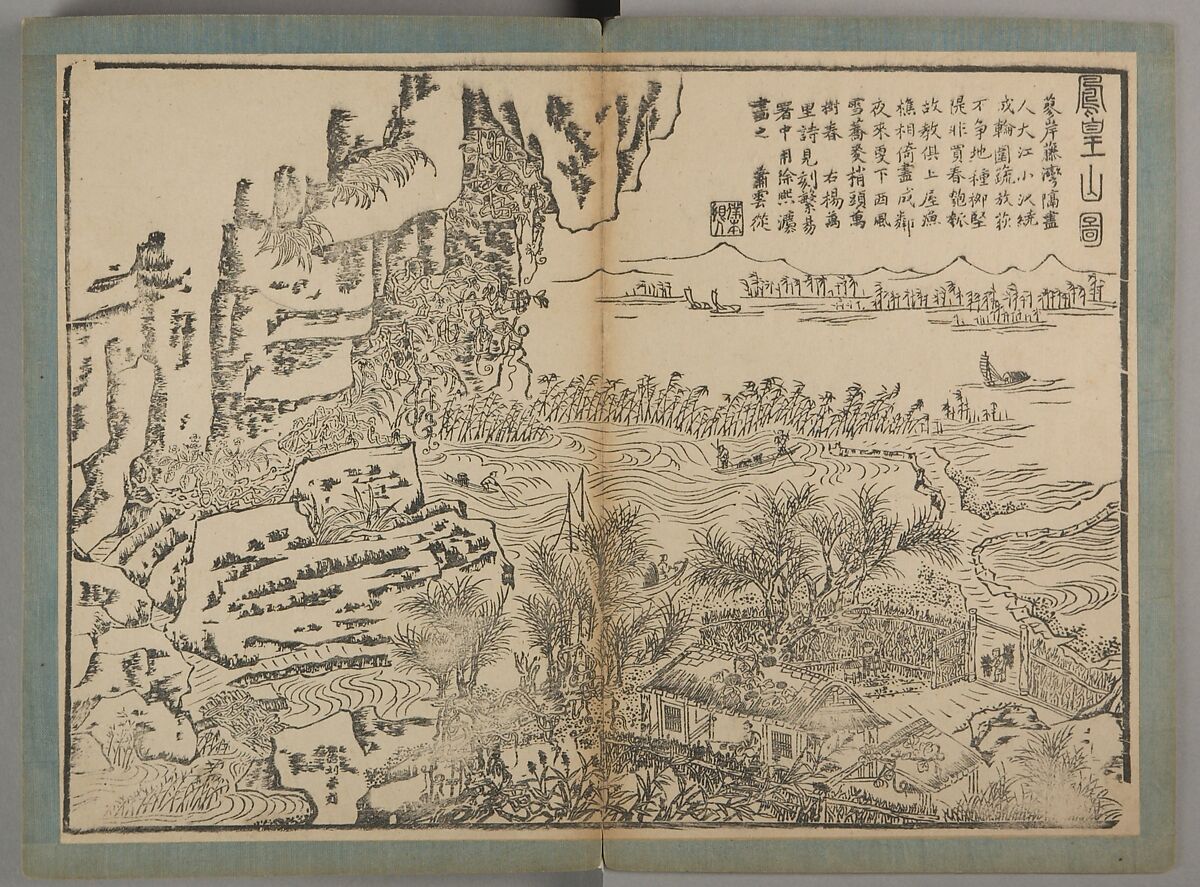 鳳皇山圖
蓼岸藤灣隔盡
人大江小汊繞
成輪圍蔬放荻
不爭地種柳堅
隄非買春匏瓠
故教俱上屋漁
樵相倚盡成鄰
夜來更下西風
雪蕎麥梢頭萬
樹春 右楊萬
里詩見刻繁昌
署中用徐熙濃
畫之 蕭雲從